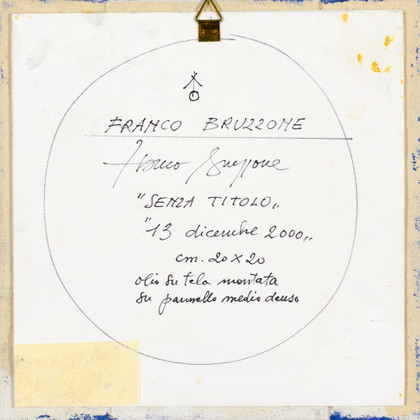 FRANCO BRUZZONE
Franco Bruzzone
"SENZA TITOLO„
"13 dicembre 2000„
cm. 20 x 20
olio su tela montata
su pannello medio denso